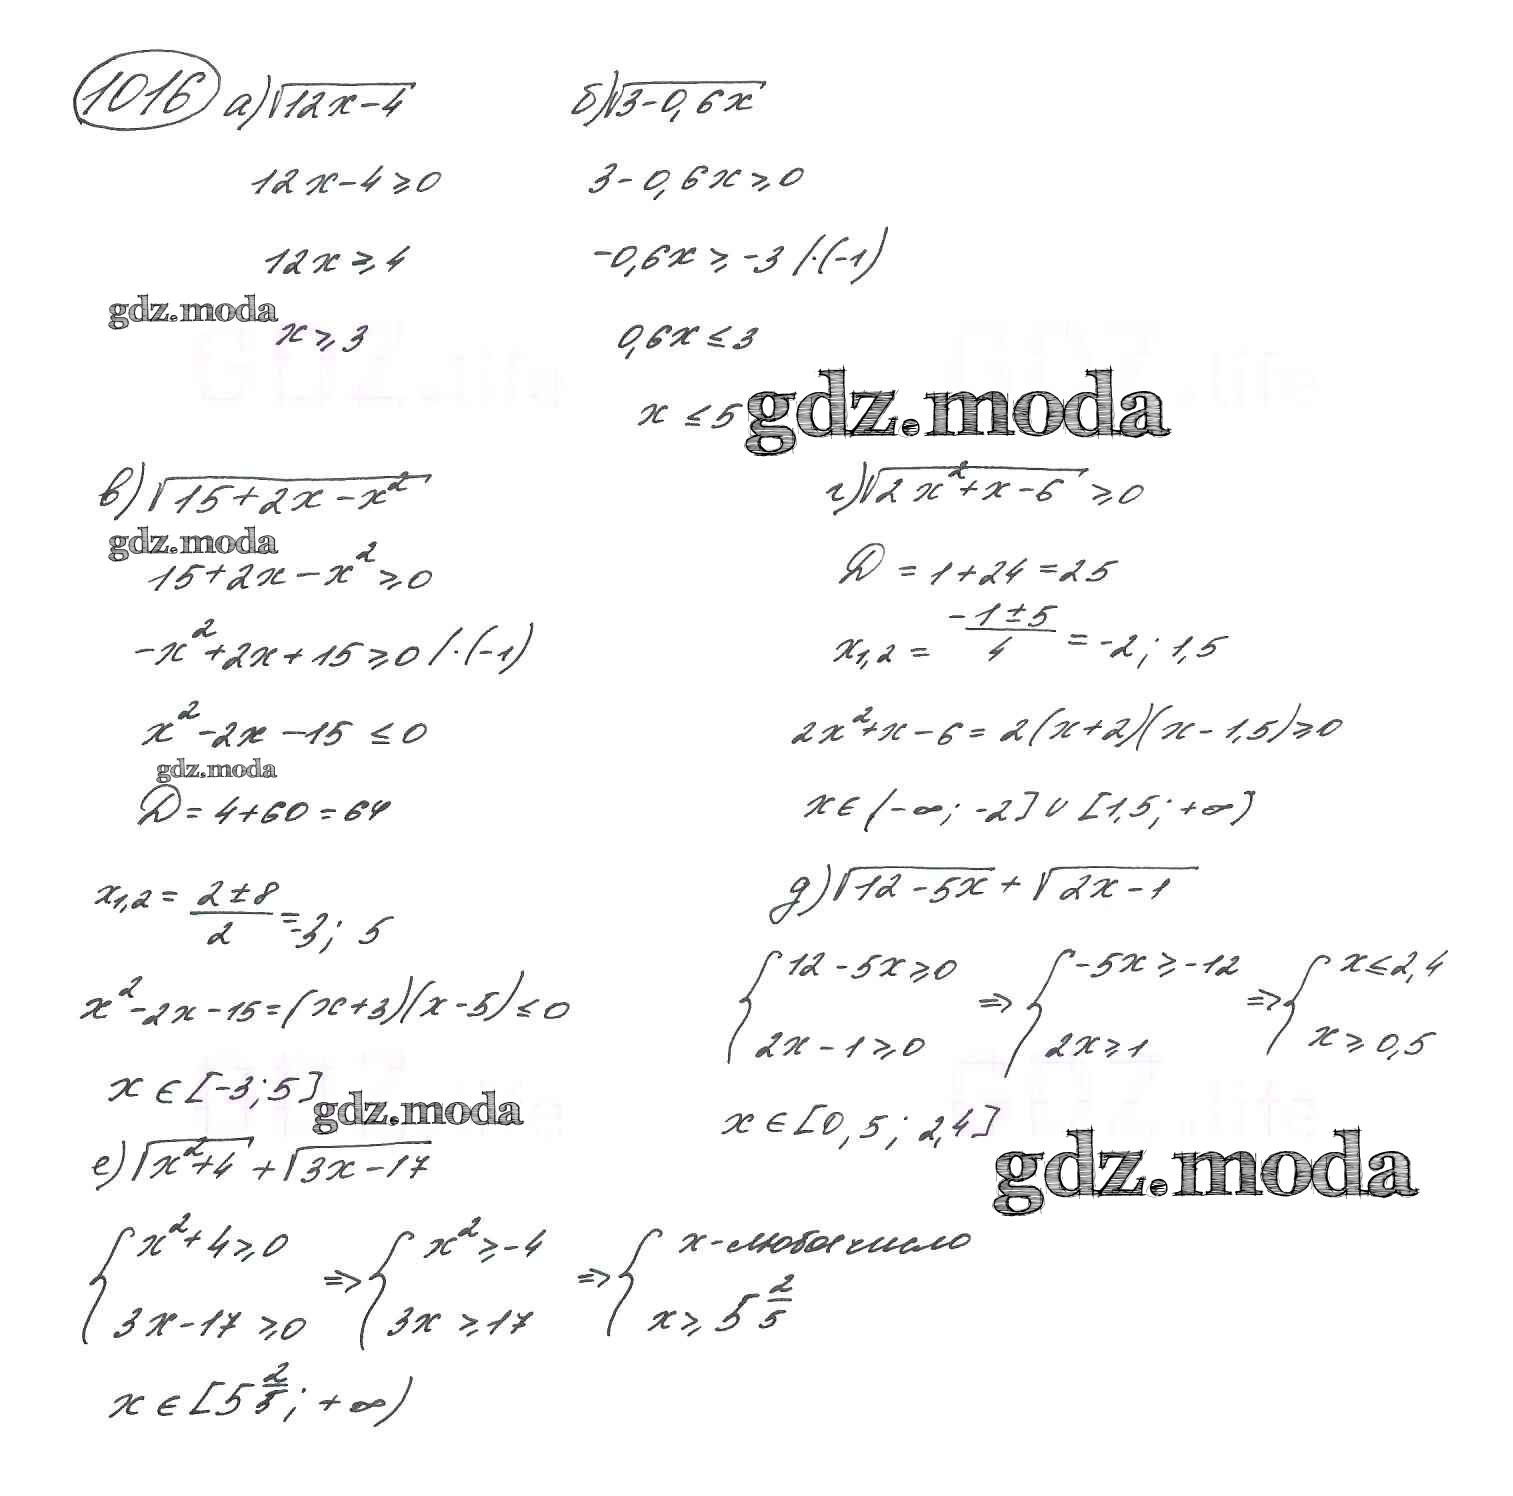 1016 а) √(12x-4)
12x-4≥0
12x≥4
gdz.moda
x≥3
б) √(3-0,6x)
3-0,6x≥0
-0,6x≥-3 /·(-1)
0,6x≤3
x≤5
gdz.moda
в) √(15+2x-x²)
gdz.moda
15+2x-x²≥0
-x²+2x+15≥0 /·(-1)
x²-2x-15≤0
gdz.moda
D=4+60=64
x₁,₂ = (2±8)/2 = -3; 5
x²-2x-15=(x+3)(x-5)≤0
x∈[-3;5]
gdz.moda
г) √(2x²+x-6) ≥0
D=1+24=25
x₁,₂ = (-1±5)/4 = -2; 1,5
2x²+x-6=2(x+2)(x-1,5)≥0
x∈(-∞; -2]∪[1,5; +∞)
д) √(12-5x) + √(2x-1)
{12-5x≥0 ; 2x-1≥0 => {-5x≥-12 ; 2x≥1 => {x≤2,4 ; x≥0,5
x∈[0,5; 2,4]
gdz.moda
е) √(x²+4) + √(3x-17)
{x²+4≥0 ; 3x-17≥0 => {x²≥-4 ; 3x≥17 => {x-любое число ; x≥5 2/5
x∈[5 2/3; +∞)
GDZ.life
GDZ.life
GDZ.life
GDZ.life